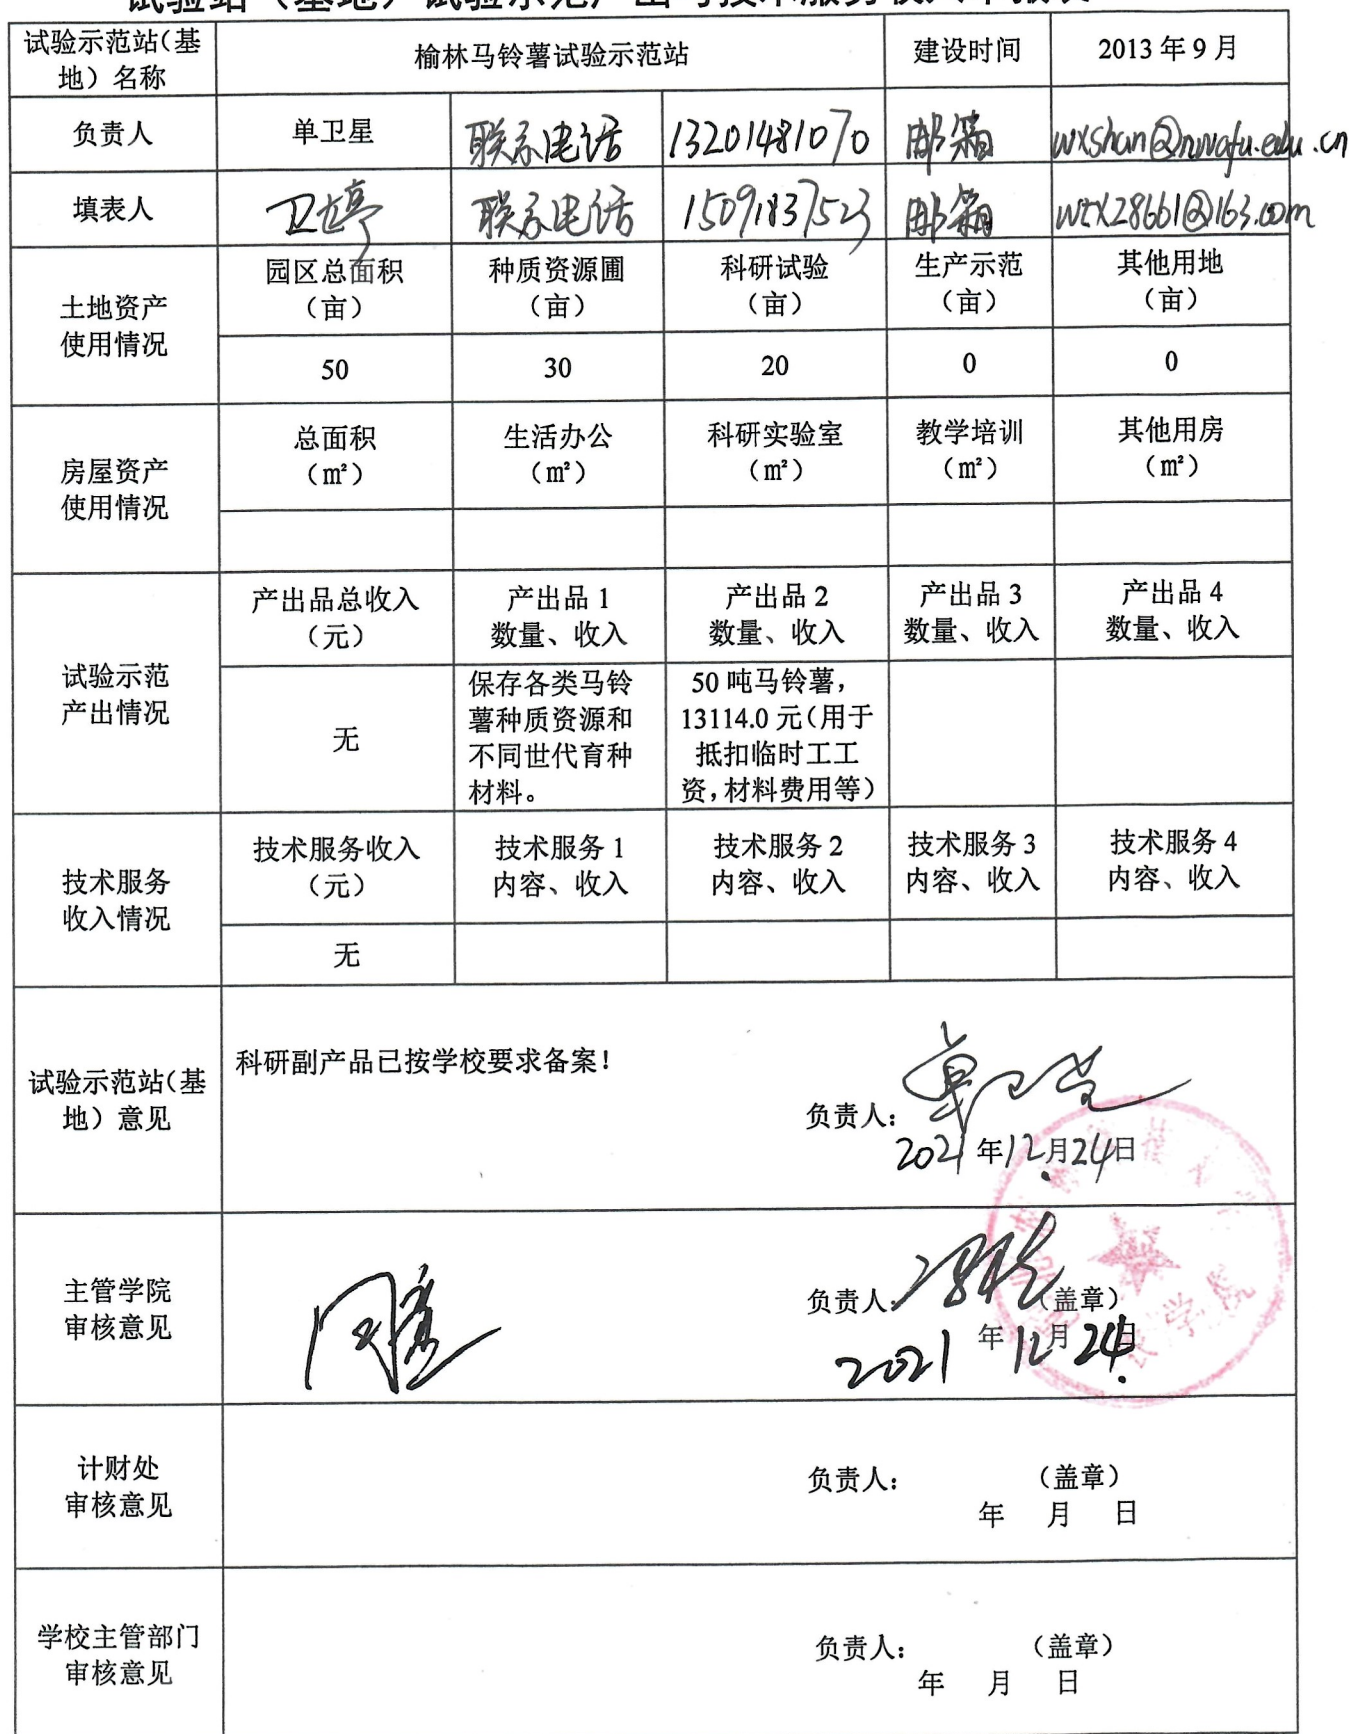 试验站（基地）试验示范产出与技术服务收入年报表
试验示范站(基
地）名称
榆林马铃薯试验示范站
建设时间
2013年9月
负责人
单卫星
联系电话
13201481070
邮箱
wxshan@nwafu.edu.cn
填表人
联系电话
15091837523
邮箱
wtx28661@163.com
土地资产
使用情况
园区总面积
（亩）
种质资源圃
（亩）
科研试验
（亩）
生产示范
（亩）
其他用地
（亩）
50
30
20
0
0
房屋资产
使用情况
总面积
（㎡）
生活办公
（㎡）
科研实验室
（㎡）
教学培训
（㎡）
其他用房
（㎡）
试验示范
产出情况
产出品总收入
（元）
产出品1
数量、收入
产出品2
数量、收入
产出品3
数量、收入
产出品4
数量、收入
无
保存各类马铃
薯种质资源和
不同世代育种
材料。
50吨马铃薯，
13114.0元(用于
抵扣临时工工
资,材料费用等）
技术服务
收入情况
技术服务收入
（元）
技术服务1
内容、收入
技术服务2
内容、收入
技术服务3
内容、收入
技术服务4
内容、收入
无
试验示范站(基
地）意见
科研副产品已按学校要求备案！
负责人：单卫星
2021年12月24日
主管学院
审核意见
同意
负责人（盖章）
2021年12月24日
计财处
审核意见
负责人： （盖章）
年 月 日
学校主管部门
审核意见
负责人： （盖章）
年 月 日